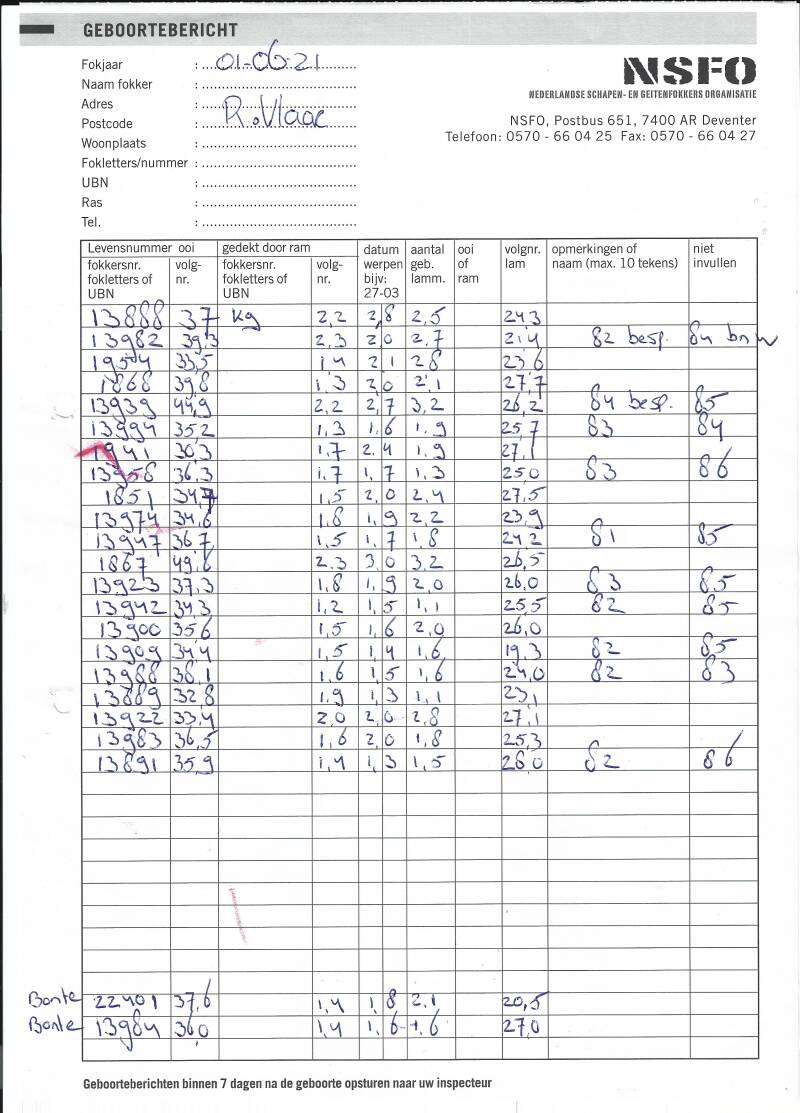 GEBOORTEBERICHT
Fokjaar : 01-06-21
Naam fokker :
Adres : R. Vlaar
Postcode :
Woonplaats :
Fokletters/nummer :
UBN :
Ras :
Tel. :
NSFO
NEDERLANDSE SCHAPEN- EN GEITENFOKKERS ORGANISATIE
NSFO, Postbus 651, 7400 AR Deventer
Telefoon: 0570 - 66 04 25 Fax: 0570 - 66 04 27
Levensnummer ooi gedekt door ram datum aantal ooi volgnr. opmerkingen of niet
fokkersnr. volg- fokkersnr. volg- werpen geb. of lam naam (max. 10 tekens) invullen
fokletters of nr. fokletters of nr. bijv: lamm. ram
UBN UBN 27-03
13888 37 kg 2,2 2,8 2,5 24,3
13982 39,3 2,3 2,0 2,7 21,4 82 besp. 84 bnw
1954 33,5 1,4 2,1 2,8 23,6
1868 39,8 1,3 2,0 2,1 27,7
13939 44,9 2,2 2,7 3,2 26,2 84 besp. 85
13994 35,2 1,3 1,6 1,9 25,7 83 84
1941 30,3 1,7 2,4 1,9 27,1
13958 36,3 1,7 1,7 1,3 25,0 83 86
1851 34,7 1,5 2,0 2,4 27,5
13974 34,6 1,8 1,9 2,2 23,9
13947 36,7 1,5 1,7 1,8 24,2 81 85
1867 49,6 2,3 3,0 3,2 26,5
13923 37,3 1,8 1,9 2,0 26,0 83 85
13942 34,3 1,2 1,5 1,1 25,5 82 85
13900 35,6 1,5 1,6 2,0 26,0
13909 34,4 1,5 1,4 1,6 19,3 82 85
13988 38,1 1,6 1,5 1,6 24,0 82 83
13889 32,8 1,9 1,3 1,1 23,1
13922 33,4 2,0 2,0 2,8 27,1
13983 36,5 1,6 2,0 1,8 25,3
13891 35,9 1,4 1,3 1,5 28,0 82 86
Bonte 22401 37,6 1,4 1,8 2,1 20,5
Bonte 13984 36,0 1,4 1,6 1,6 27,0
Geboorteberichten binnen 7 dagen na de geboorte opsturen naar uw inspecteur